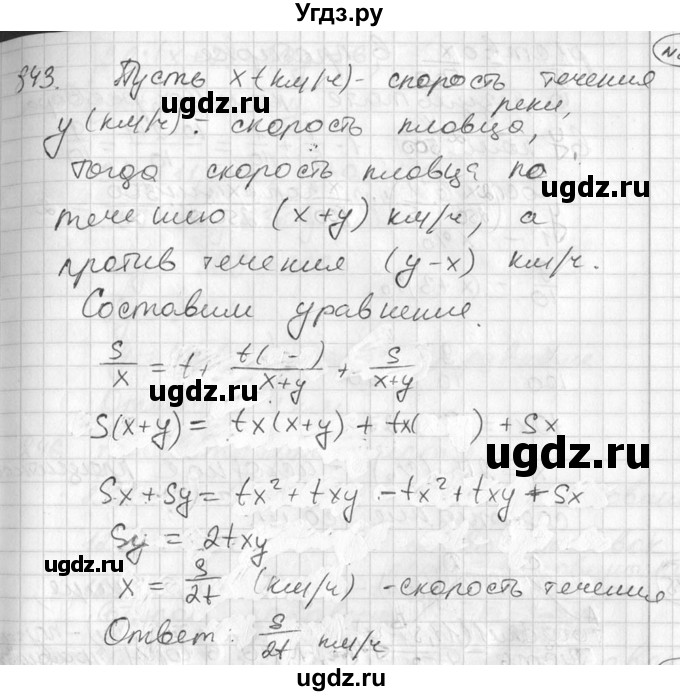 Угдз.ру
N
343. Пусть x (км/ч) - скорость течения
реки,
y (км/ч) - скорость пловца,
ugdz.ru
Тогда скорость пловца по
ugdz.ru
течению (x+y) км/ч, а
против течения (y-x) км/ч.
Составим уравнение.
S/x = t + t( - )/(x+y) + S/(x+y)
ugdz.ru
S(x+y) = tx(x+y) + tx( ) + Sx
ugdz.ru
Sx + Sy = tx² + txy - tx² + txy + Sx
Sy = 2txy
x = S/2t (км/ч) - скорость течения
Ответ: S/2t км/ч
ugdz.ru
ugdz.ru
Угдз.ру